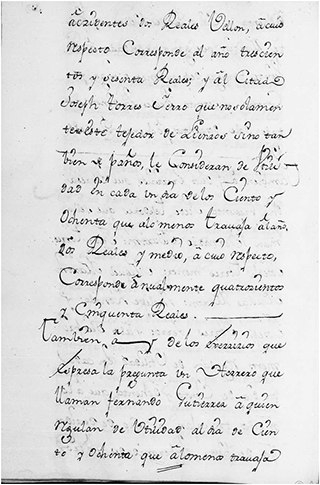 aczidentes dos Reales Vellon, a cuio
respecto Corresponde al año trescien
tos y sesenta Reales; y al Citado
Joseph torres Cerro que no solamen
te es este tejedor de Lienzos sino tan
bien de paños, le Consideran de Vtili
dad en cada un dia de los Ciento y
Ochenta que alo menos travaja al año,
dos Reales y medio, a cuio respecto,
Corresponde anualmente quatrocientos
y Cinquenta Reales.
tambien a y de los herreros que
Expresa la pregunta un Herrero que
llaman fernando Gutierrez a quien
regulan de Vtilidad al dia de Cien
to y Ochenta que alomenos travaja